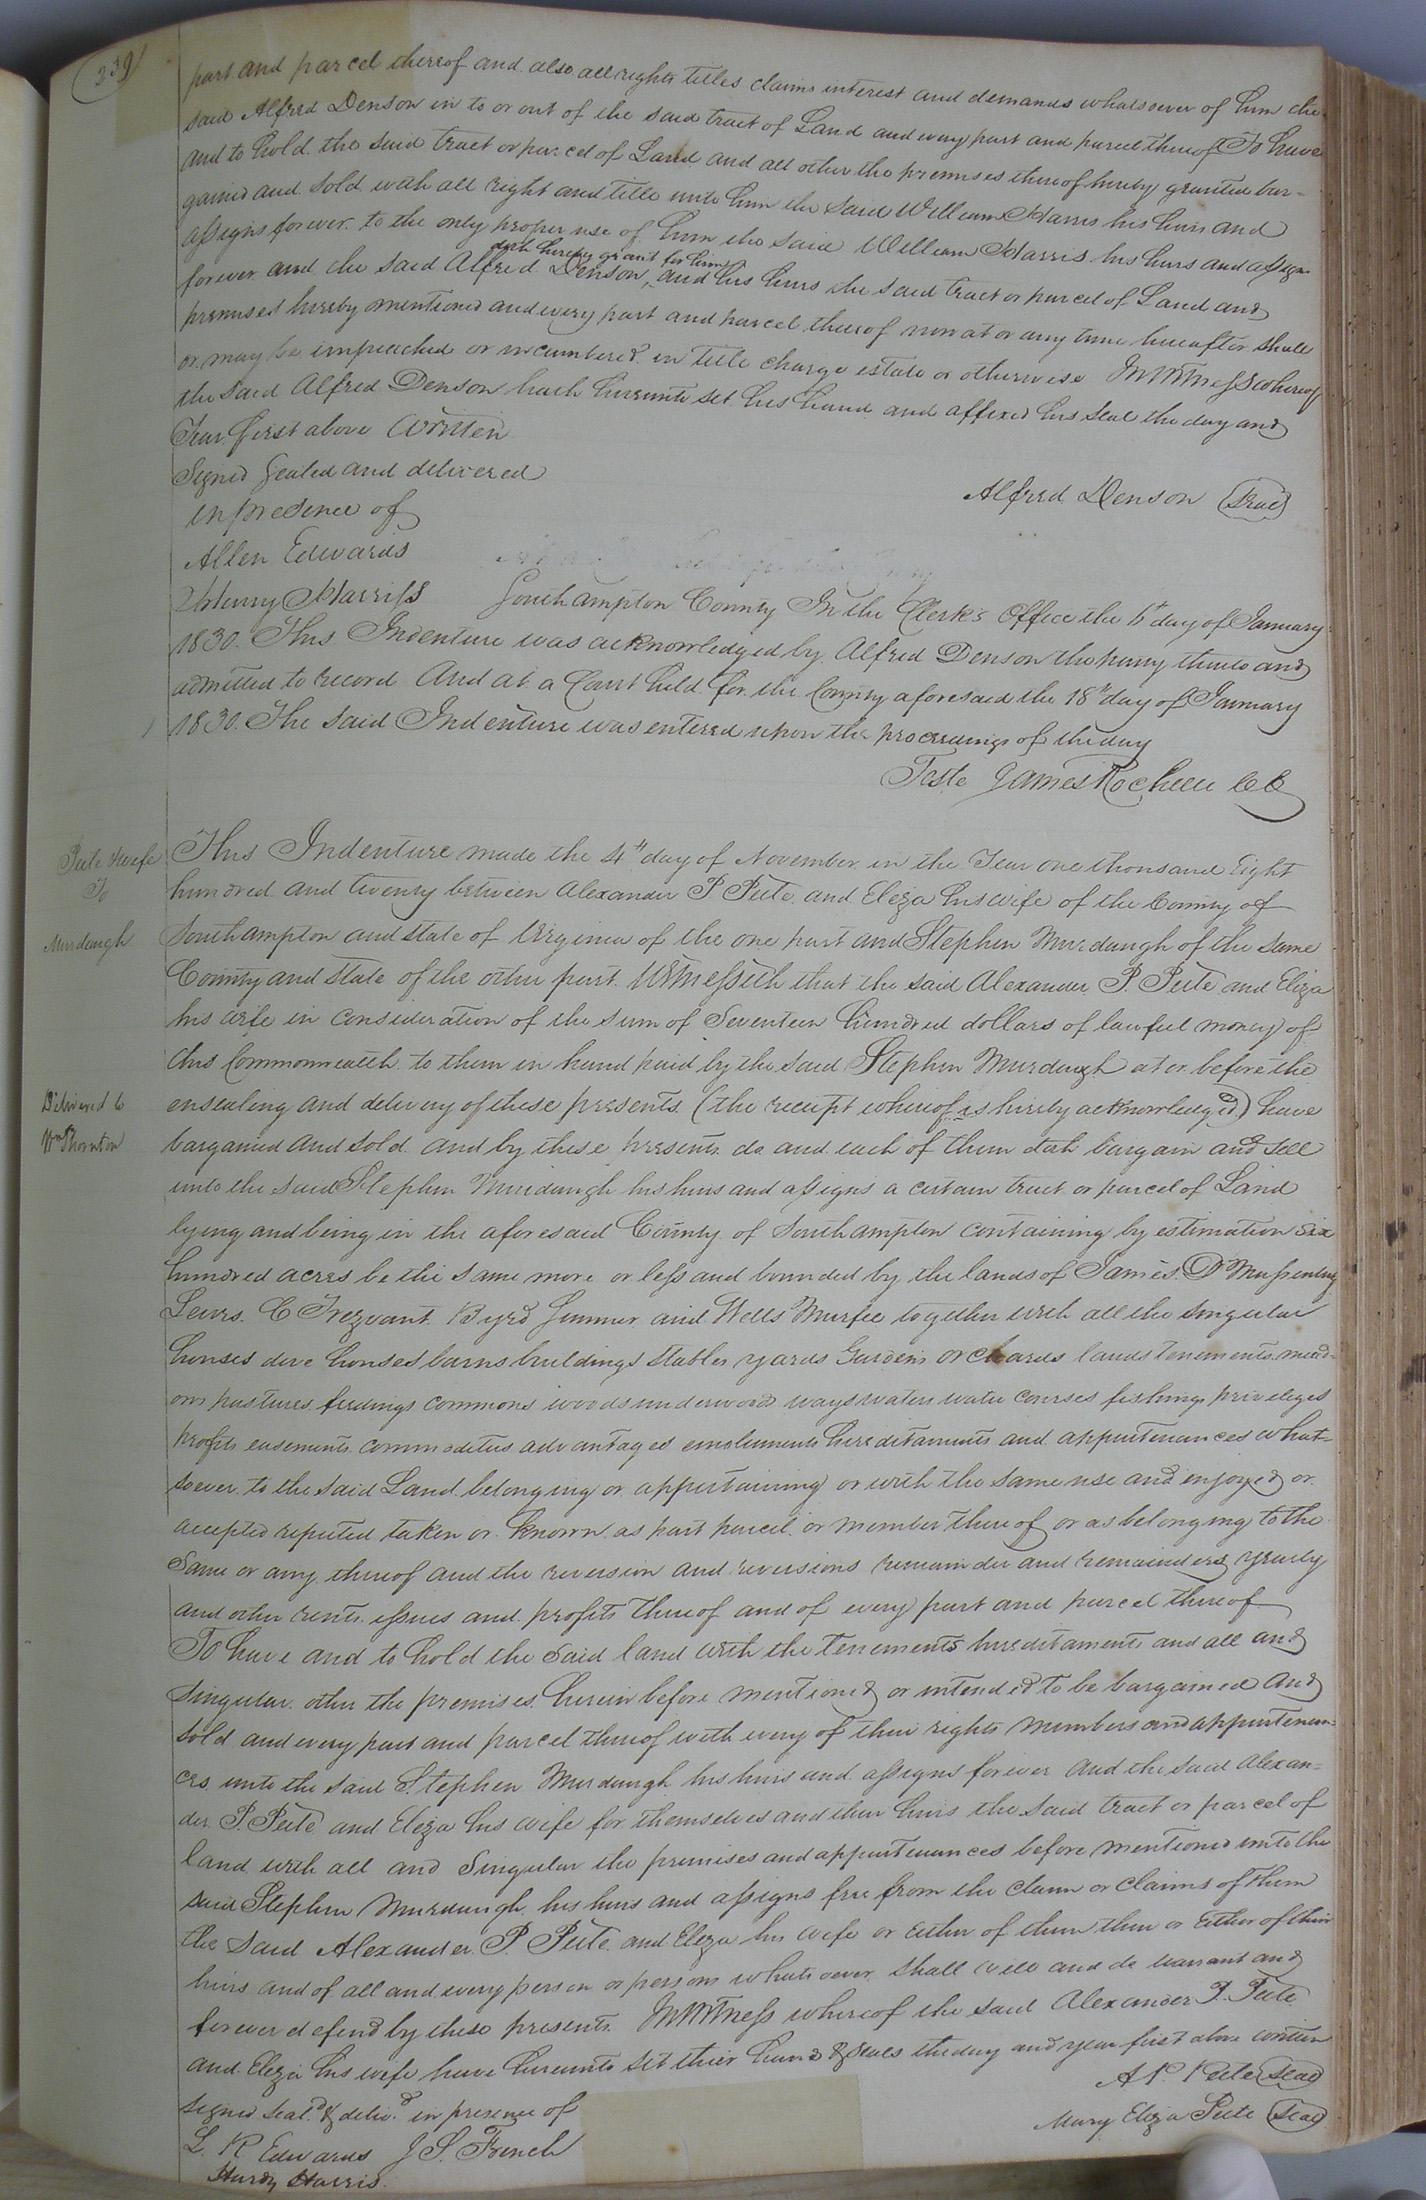 239
part and parcel thereof and also all rights titles claims interest and demands whatsoever of him the
said Alfred Denson in to or out of the said tract of Land and every part and parcel thereof To have
and to hold the said tract or parcel of Land and all other the premises thereof hereby granted bar-
gained and sold with all right and title unto him the said William Harris his heirs and
assigns forever to the only proper use of him the said William Harris his heirs and assigns
doth hereby grant for him
forever and the said Alfred Denson, and his heirs the said tract or parcel of Land and
premises hereby mentioned and every part and parcel thereof now at or any time hereafter shall
or may be impeached or incumbered in title charge estate or otherwise In Witness whereof
the said Alfred Denson hath hereunto set his hand and affixed his seal the day and
Year first above Written
Signed Sealed and delivered
in presence of
Alfred Denson (Seal)
Allen Edwards
Henry Harriss
Southampton County In the Clerk's Office the 6th day of January
1830. This Indenture was acknowledged by Alfred Denson the party thereto and
admitted to record And at a Court held for the County aforesaid the 18th day of January
1830. The said Indenture was entered upon the proceedings of the day
Teste James Rochelle CC
Peete & wife
To
Murdaugh
This Indenture made the 4th day of November in the Year one thousand Eight
hundred and twenty between Alexander P Peete and Eliza his wife of the County of
Southampton and state of Virginia of the one part and Stephen Murdaugh of the same
County and State of the other part. Witnesseth that the said Alexander P. Peete and Eliza
his wife in consideration of the sum of Seventeen hundred dollars of lawful money of
this Commonwealth to them in hand paid by the said Stephen Murdaugh at or before the
Delivered to
Wm Thornton
ensealing and delivery of these presents (the receipt whereof is hereby acknowledged) have
bargained and sold and by these presents do and each of them doth bargain and sell
unto the said Stephen Murdaugh his heirs and assigns a certain tract or parcel of Land
lying and being in the aforesaid County of Southampton containing by estimation six
hundred acres be the same more or less and bounded by the lands of James D Massenburg
Lewis C Trezvant Byrd Sumner and Wells Murfee together with all the singular
houses dove houses barns buildings stables yards Gardens orchards lands tenements mead-
ows pastures feedings commons woods underwood ways waters water courses fishings priveleges
profits easements commodities advantages emoluments hereditaments and appurtenances what-
soever to the said Land belonging or appertaining or with the same use and enjoyed or
accepted reputed taken or known as part parcel or member thereof or as belonging to the
Same or any thereof and the reversion and reversions remainder and remainders yearly
and other rents issues and profits thereof and of every part and parcel thereof
To have and to hold the said land with the tenements hereditaments and all and
singular other the premises herein before mentioned or intended to be bargained and
sold and every part and parcel thereof with every of their rights members and appurtenan-
ces unto the said Stephen Murdaugh his heirs and assigns forever and the said Alexan-
der P. Peete and Eliza his wife for themselves and their heirs the said tract or parcel of
land with all and Singular the premises and appurtenances before mentioned unto the
said Stephen Murdaugh his heirs and assigns free from the claim or claims of them
the said Alexander P. Peete and Eliza his wife or either of them their or Either of their
heirs and of all and every person or persons whatsoever shall will and do warrant and
forever defend by these presents In Witness whereof the said Alexander P. Peete
and Eliza his wife have hereunto set thier hands & seals the day and year first above written
A P. Peete (Seal)
signed seal.d & deliv.d in presence of
Mary Eliza Peete (Seal)
L. R Edwards J S. French
Hardy Harris